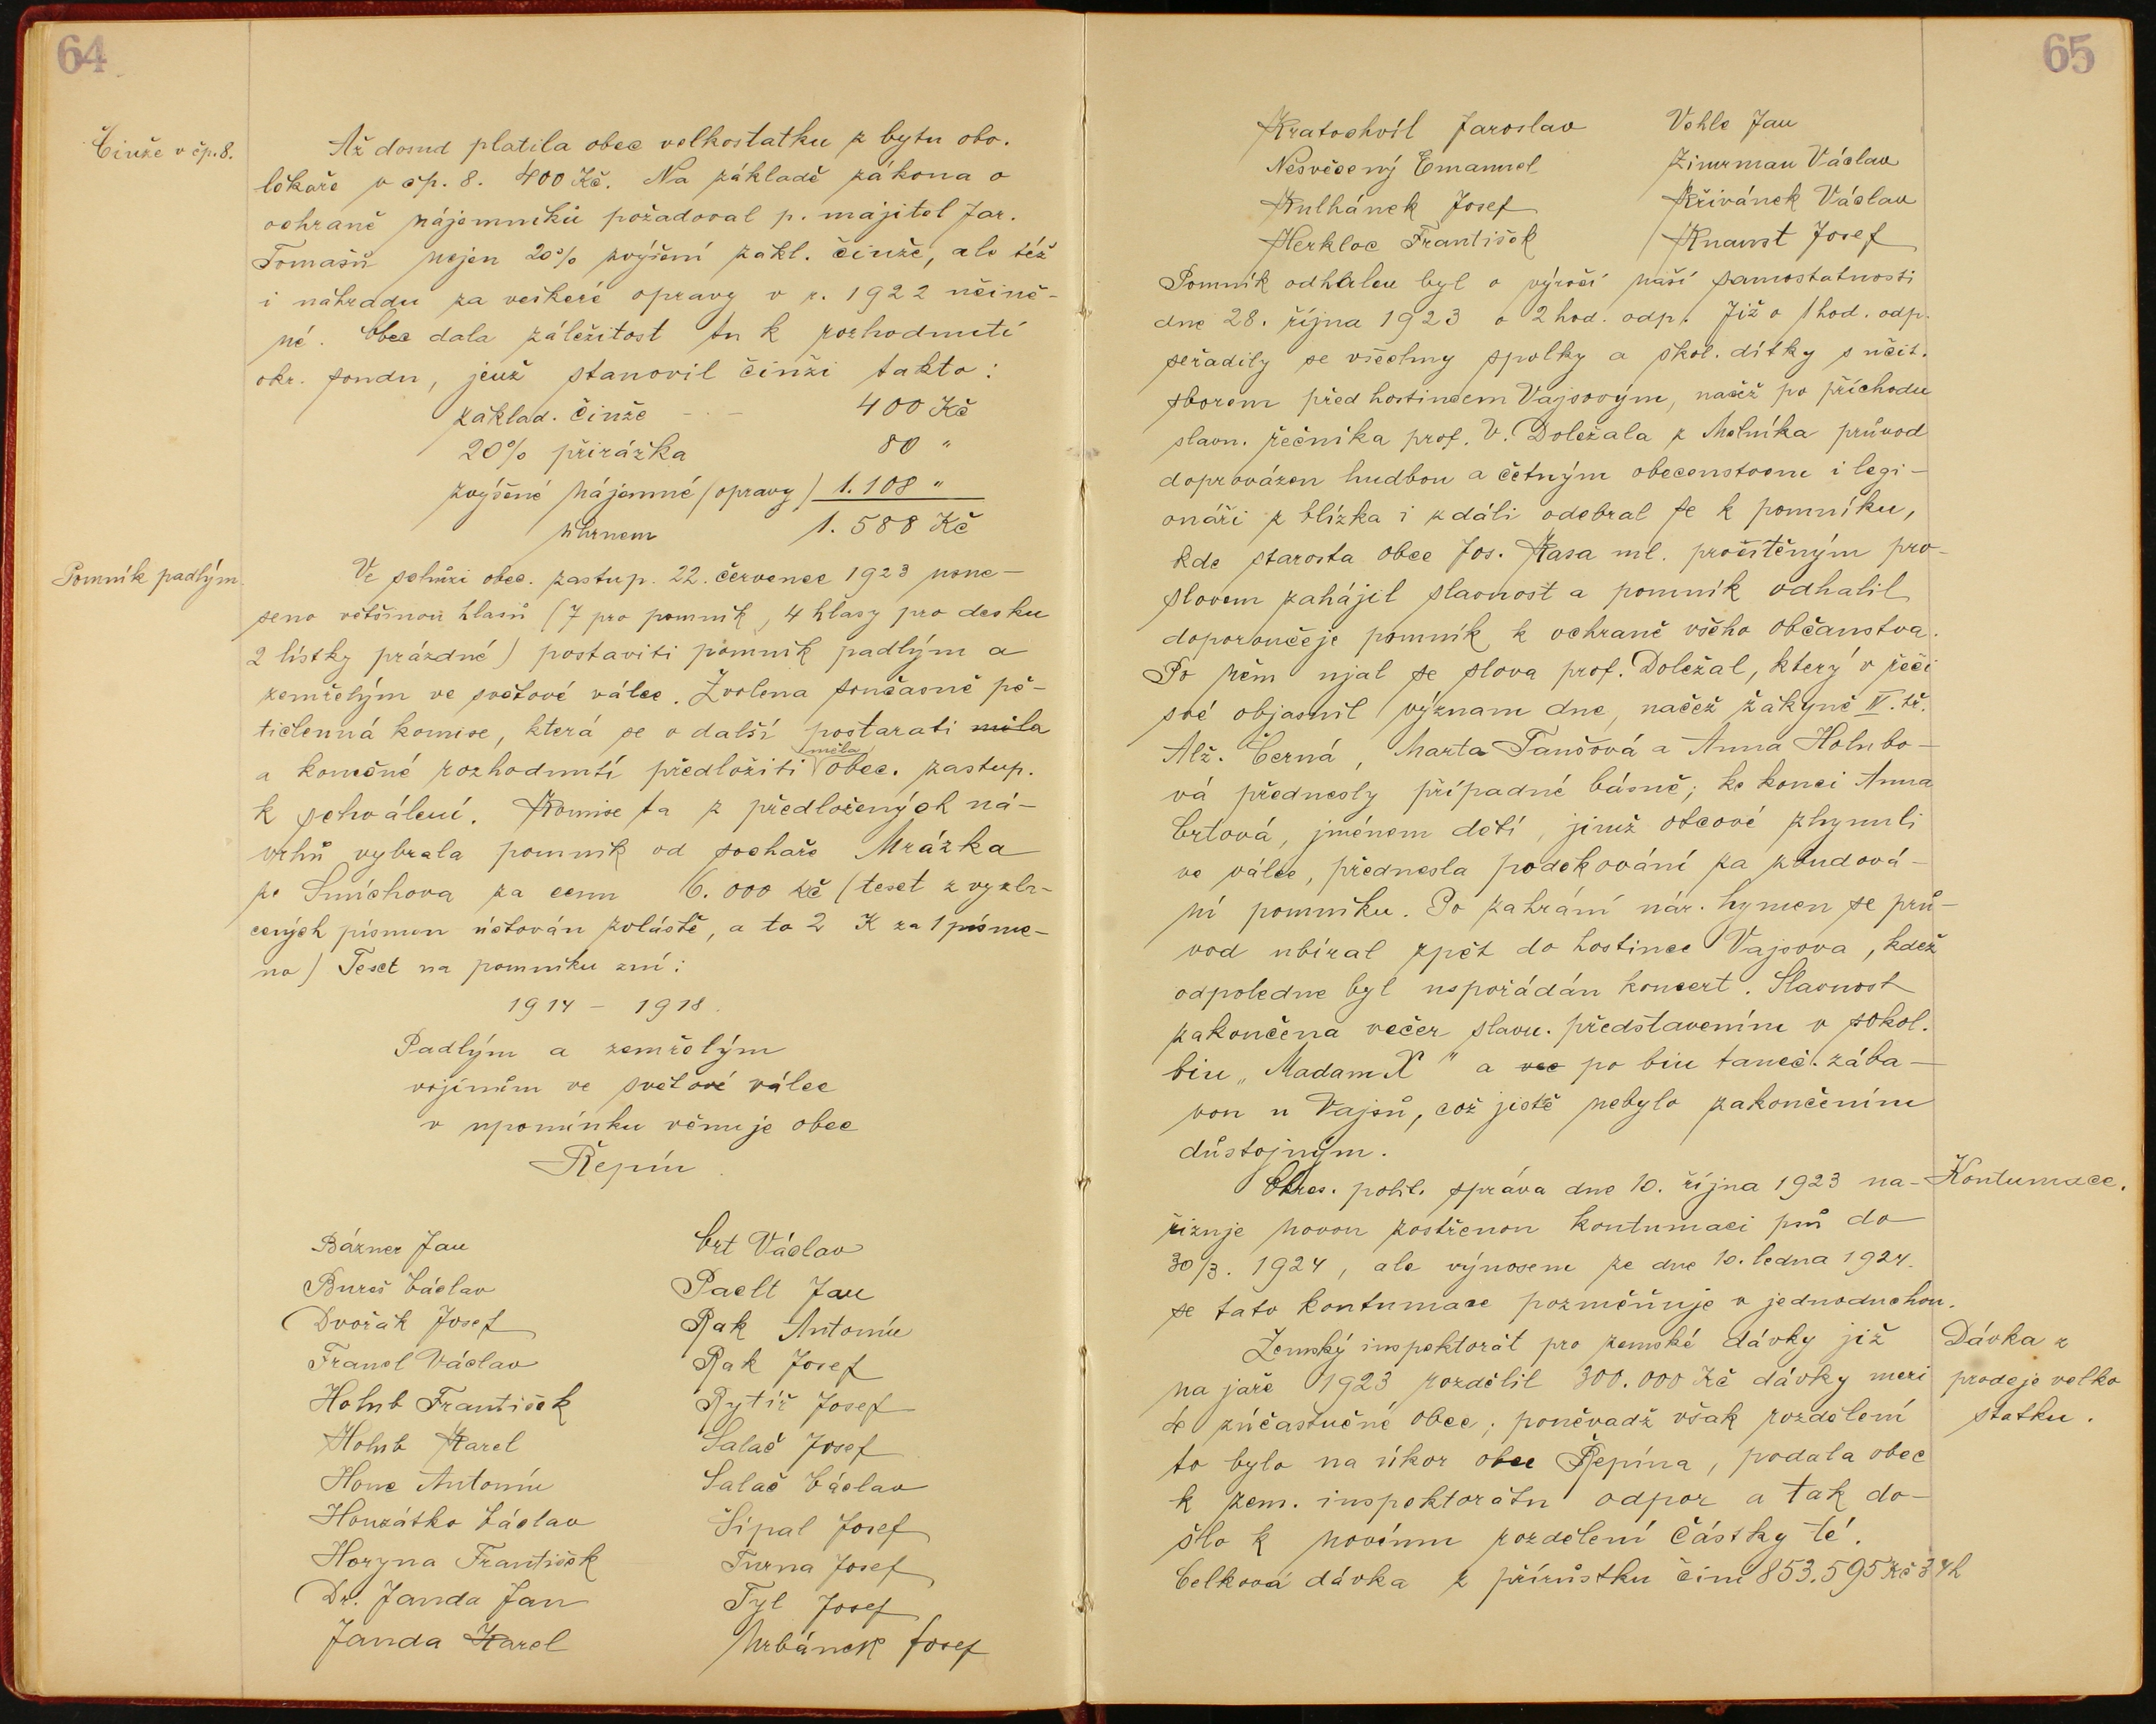 64
Činže v čp. 8.
Až dosud platila obec velkostatku z bytu obv.
lékaře v čp. 8. 400 Kč. Na základě zákona o
ochraně nájemníků požadoval p. majitel Jar.
Tomášů nejen 20% zvýšení zákl. činže, ale též
i náhradu za veškeré opravy v r. 1922 učině-
né. Obec dala záležitost tu k rozhodnutí
okr. soudu, jenž stanovil činži takto:
základ. činže - . - 400 Kč
20% přirážka 80 "
zvýšené nájemné (opravy) 1.108 "
úhrnem 1.588 Kč
Pomník padlým.
Ve schůzi obec. zastup. 22. červenec 1923 usne-
seno většinou hlasů (7 pro pomník, 4 hlasy pro desku
2 lístky prázdné) postaviti pomník padlým a
zemřelým ve světové válce. Zvolena současně pě-
tičlenná komise, která se o další postarati měla
a konečné rozhodnutí předložiti měla obec. zastup.
k schválení. Komise ta z předložených ná-
vrhů vybrala pomník od sochaře Mrázka
ze Smíchova za cenu 6.000 Kč (teset z vyzla-
cených písmen účtován zvláště, a to 2 K za 1 písme-
no) Teset na pomníku zní:
1914 - 1918.
Padlým a zemřelým
vojínům ve světové válce
v upomínku věnuje obec
Řepín.
Bázner Jan Crt Václav
Bureš Václav Paelt Jan
Dvořák Josef Rak Antonín
Francl Václav Rak Josef
Holub František Rytíř Josef
Holub Karel Salač Josef
Honc Antonín Salač Václav
Honzátko Václav Šípal Josef
Horyna František Turna Josef
Dr. Janda Jan Tyl Josef
Janda Karel Urbánek Josef
65
Kratochvíl Jaroslav Vehle Jan
Nesvěcený Emanuel Zimrman Václav
Kulhánek Josef Křivánek Václav
Herkloc František Knaust Josef
Pomník odhalen byl o výročí naší samostatnosti
dne 28. října 1923 o 2 hod. odp. Již o 1 hod. odp.
seřadily se všechny spolky a škol. dítky s učit.
sborem před hostincem Vajsovým, načež po příchodu
slavn. řečníka prof. V. Doležala z Mělníka průvod
doprovázen hudbou a četným obecenstvem i legi-
onáři z blízka i zdáli odebral se k pomníku,
kde starosta obce Jos. Kasa ml. procítěným pro-
slovem zahájil slavnost a pomník odhalil
doporoučeje pomník k ochraně všeho občanstva.
Po něm ujal se slova prof. Doležal, který v řeči
své objasnil význam dne, načež žákyně IV. tř.
Alž. Černá, Marta Taušová a Anna Holubo-
vá přednesly případné básně; ke konci Anna
Crtová, jménem dětí, jimž otcové zhynuli
ve válce, přednesla poděkování za zbudová-
ní pomníku. Po zahrání nár. hymen se prů-
vod ubíral zpět do hostince Vajsova, kdež
odpoledne byl uspořádán koncert. Slavnost
zakončena večer slavn. představením v sokol.
biu „Madam X" a vec po biu taneč. zába-
vou u Vajsů, což jistě nebylo zakončením
důstojným.
Kontumace.
Okres. polit. správa dne 10. října 1923 na-
řizuje novou zostřenou kontumaci psů do
30/3. 1924, ale výnosem ze dne 10. ledna 1924.
se tato kontumace pozměňuje v jednoduchou.
Dávka z
prodeje velko
statku.
Zemský inspektorát pro zemské dávky již
na jaře 1923 rozdělil 300.000 Kč dávky mezi
zúčastněné obce; poněvadž však rozdělení
to bylo na úkor obce Řepína, podala obec
k zem. inspektorátu odpor a tak do-
šlo k novému rozdělení částky té.
Celková dávka z přírůstku činí 853.595 Kč 34h